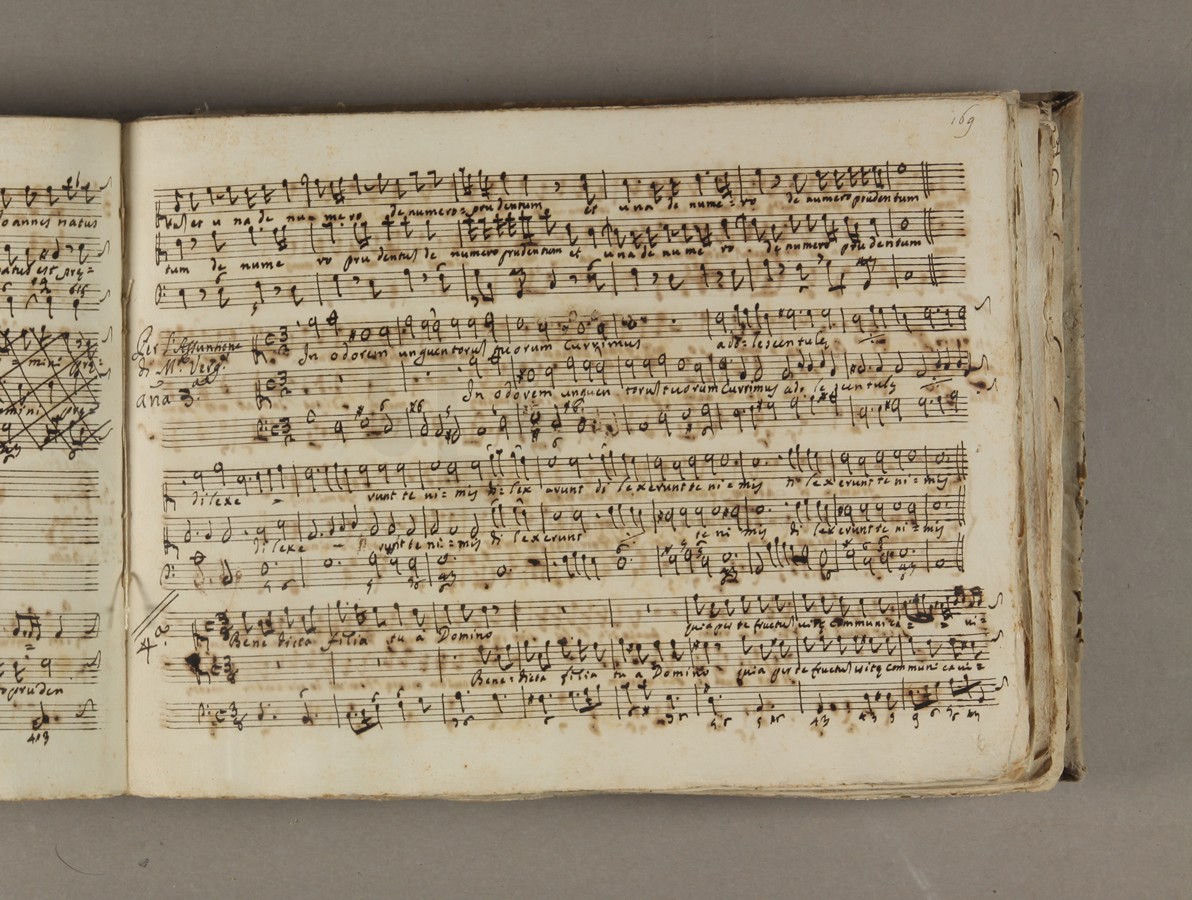 169
et u na de nu = me ro de numero = prudentum et una de nume = ro de numero prudentum
tum de nume ro pru dentus de numero prudentum et una de nume ro de numero prudentum
Per l'Assuntione
di Mª Verg.
aña 3.
In odorem unguentorum tuorum currimus ado = lescentulę
In odorem unguen torum tuorum currimus ado le scentulę
dilexe = runt te ni = mis di = lex = erunt di lexerunt te ni = mis di lexerunt te ni = mis
dilexe = runt te ni = mis di lexerunt te ni mis di lexerunt te ni = mis
4ª
Bene dicta filia tu a Domino quia per te fructus vitę communica = vi =
Bene = dicta filia tu a Domino quia per te fructus vitę communi cavi =
oannes natus
natus est prę =
mini
mini
pruden